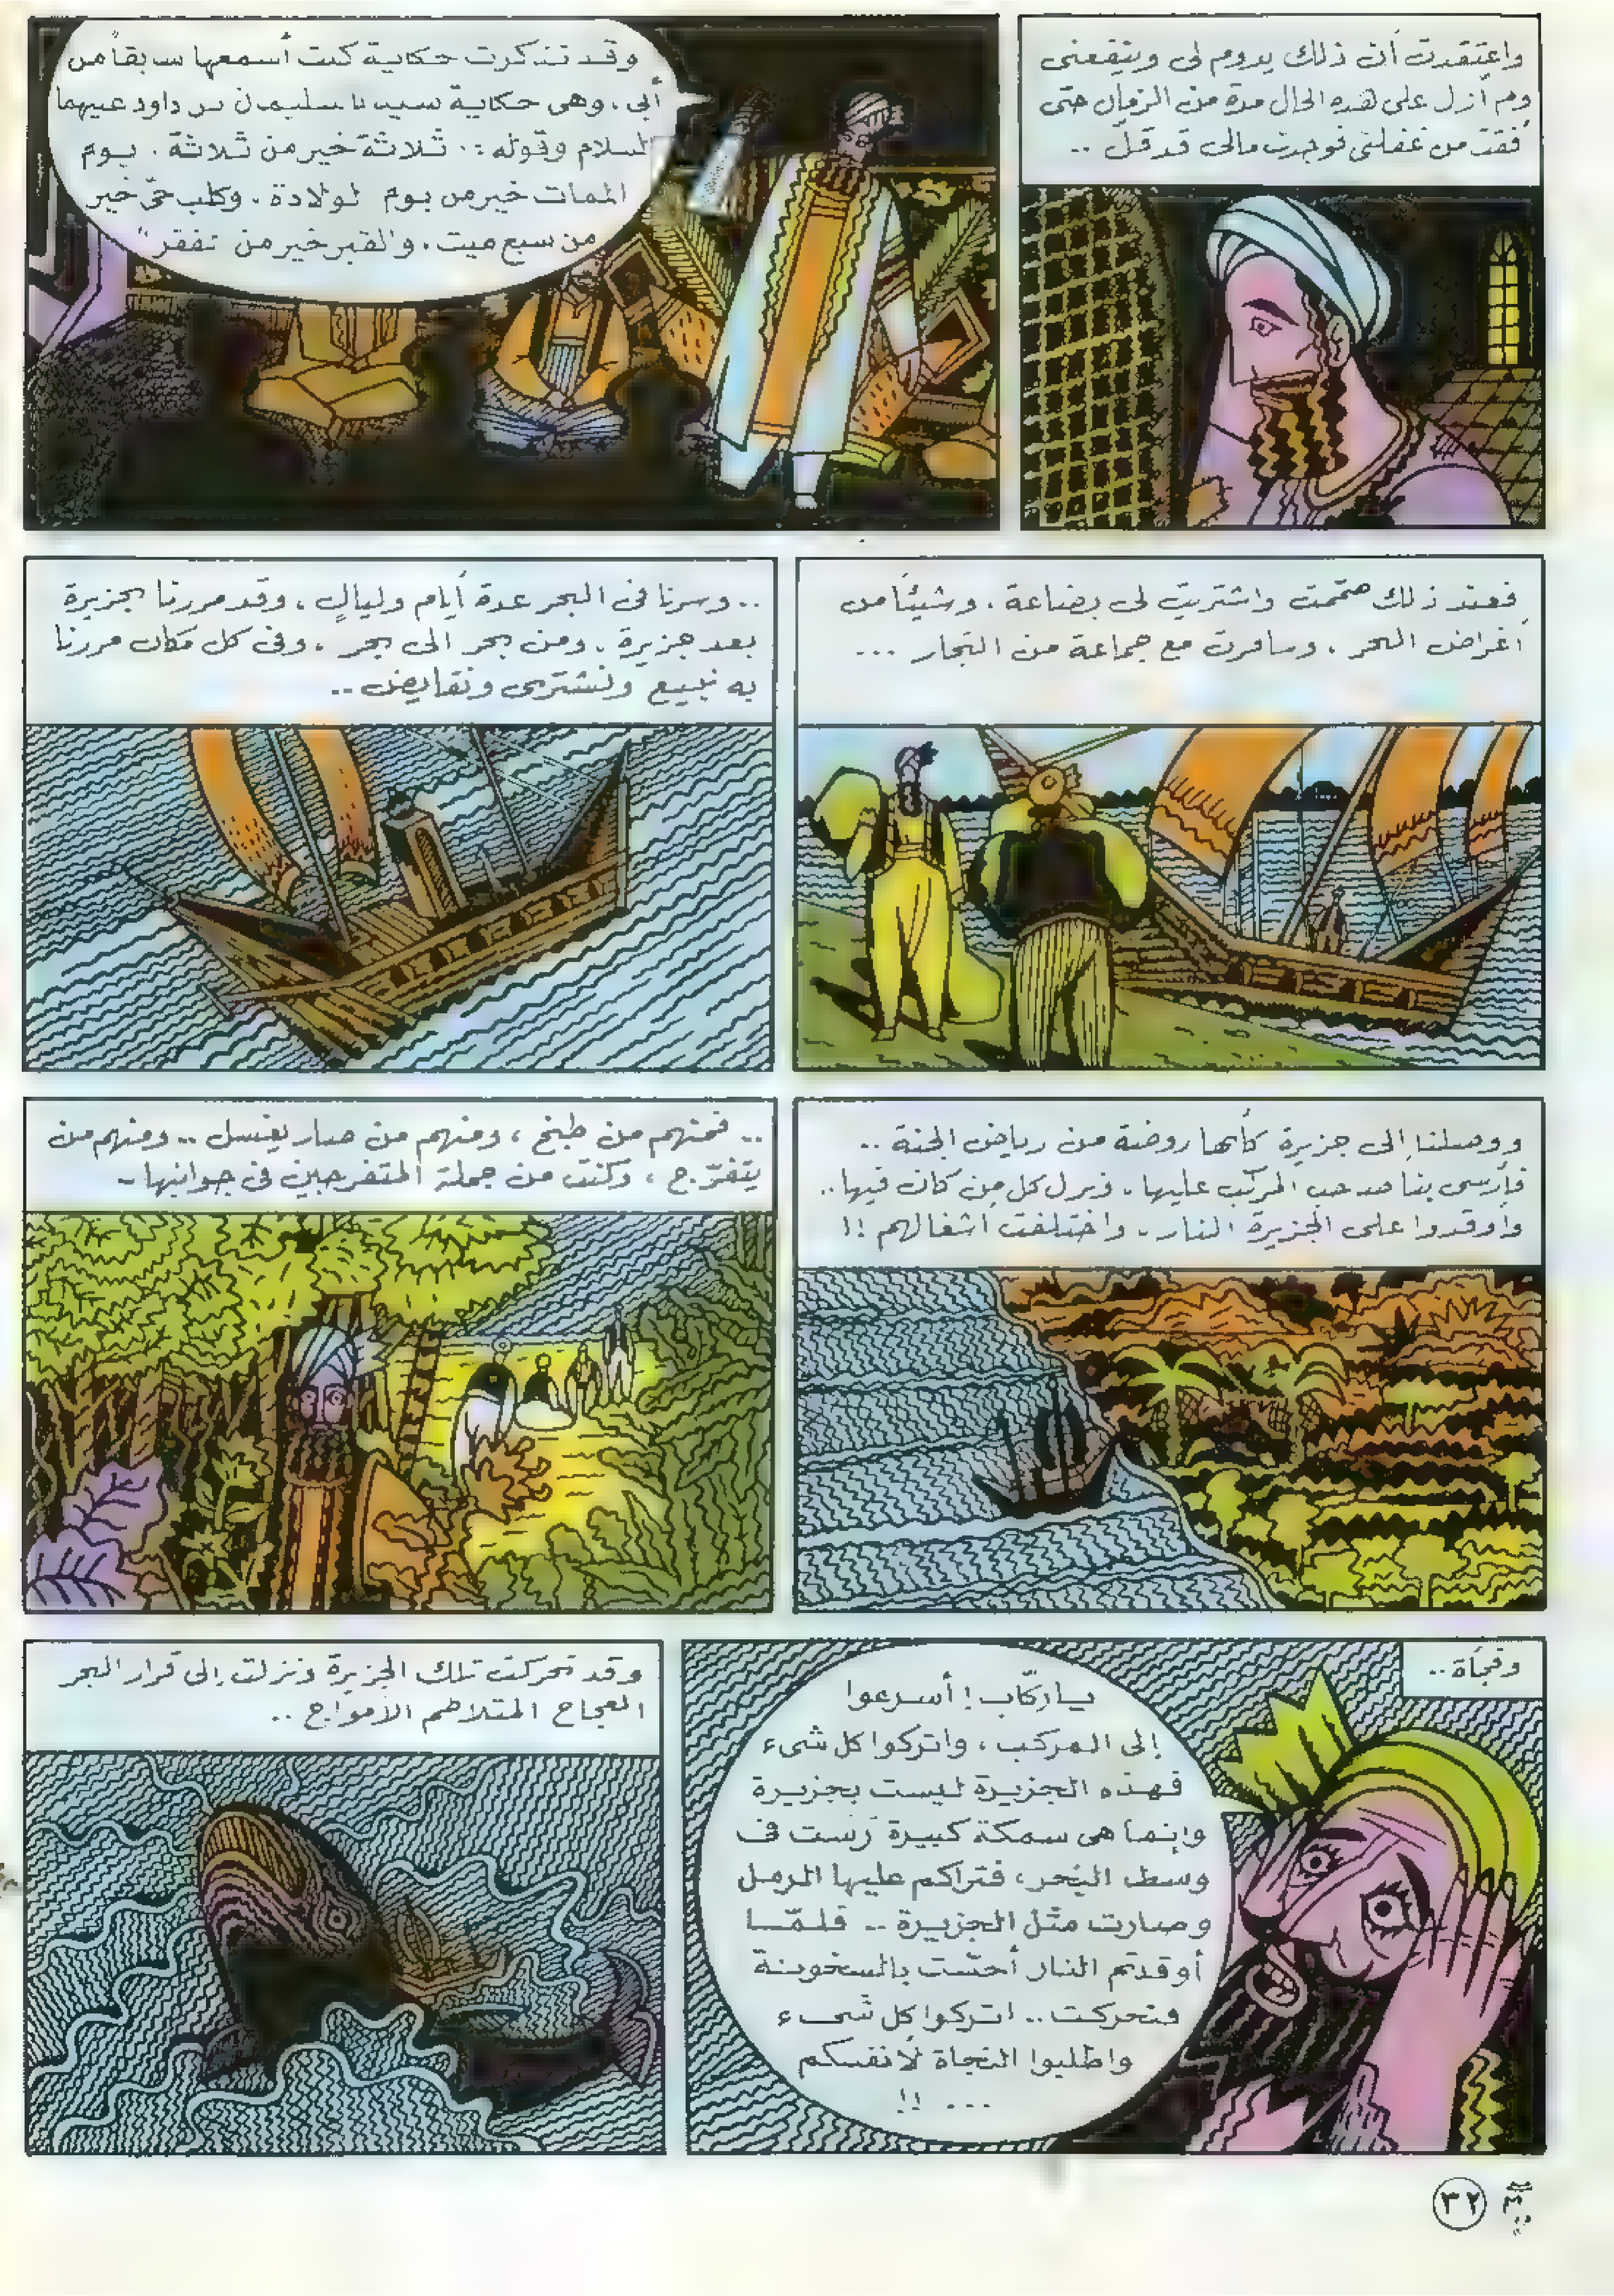 واعتقدت أن ذلك يدوم لى وينفعنى
ولم أزل على هذه الحال مدة من الزمان حتى
أفقت من غفلتى فوجدت مالى قد قلّ ..
وقد تذكرت حكاية كنت أسمعها سابقاً من
أبى، وهى حكاية سيدنا سليمان بن داود عليهما
السلام وقوله: ثلاثة خير من ثلاثة . يوم
الممات خير من يوم الولادة . وكلب حىّ خير
من سبع ميت، والقبر خير من الفقر"
فعند ذلك هممت واشتريت لى بضاعة، وشيئاً من
أغراض البحر، وسافرت مع جماعة من التجار ...
.. وسرنا فى البحر عدة أيام وليالٍ، وقد مررنا بجزيرة
بعد جزيرة، ومن بحر الى بحر، وفى كل مكان مررنا
به نبيع ونشترى ونقايض ..
ووصلنا إلى جزيرة كأنها روضة من رياض الجنة ..
فأرسى بنا صاحب المركب عليها، ونزل كل من كان فيها..
وأوقدوا على الجزيرة النار، واختلفت أشغالهم !!
.. فمنهم من طبخ، ومنهم من صار يغتسل .. ومنهم من
يتفرّج، وكنت من جملة المتفرجين فى جوانبها..
وفجأة..
يا ركّاب! أسرعوا
إلى المركب، واتركوا كل شىء
فهذه الجزيرة ليست بجزيرة
وإنما هى سمكة كبيرة رست فى
وسط البحر، فتراكم عليها الرمل
وصارت مثل الجزيرة .. فلمّا
أوقدتم النار أحسّت بالسخونة
فتحركت .. اتركوا كل شىء
واطلبوا النجاة لأنفسكم
... !!
وقد تحركت تلك الجزيرة ونزلت إلى قرار البحر
العجاج المتلاطم الأمواج ..
٣٢